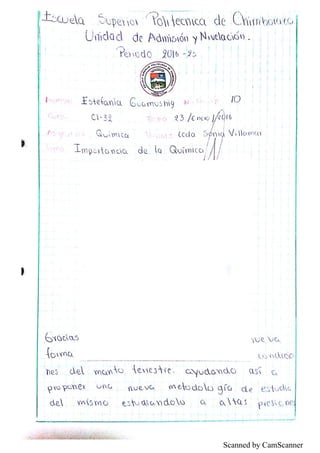 Escuela Superior Politécnica de Chimborazo
Unidad de Admisión y Nivelación.
Periodo 2016-2S
Estefania Guamushig 10
CI-32 23/Enero/2016
Química Lcda Sonia Villarroel
Importancia de la Química
Gracias nueva
forma condicio
nes del manto terrestre. ayudando así a
proponer una nueva metodología de estudio
del mismo estudiandolo a altas presiones
Scanned by CamScanner